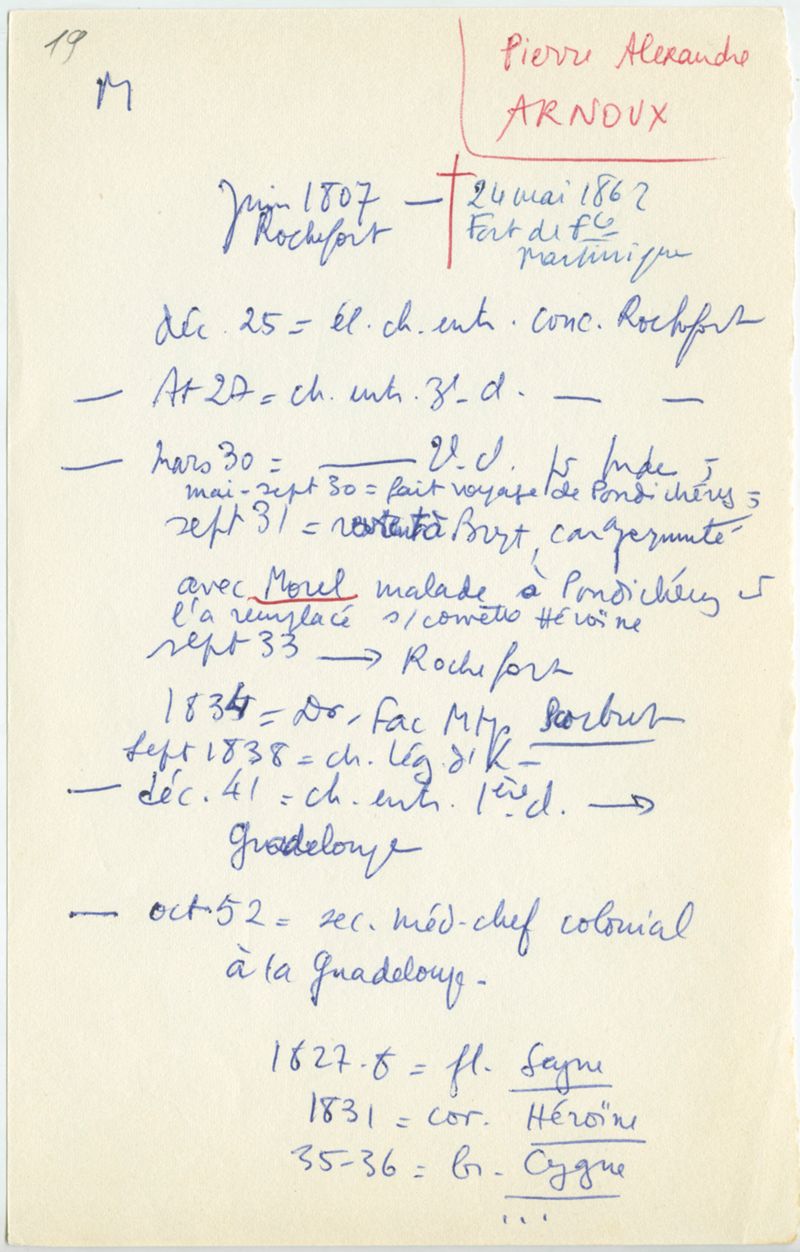 19
M
Pierre Alexandre
ARNOUX
Juin 1807 — † 24 mai 1862
Rochefort Fort de Fce
Martinique
déc. 25 = él. ch. entr. conc. Rochefort
— At 27 = ch. entr. 3e d. — —
— mars 30 = — 2e d. Inde
mai-sept 30 = fait voyage de Pondichéry
sept 31 = à Brest, car
avec Morel malade à Pondichéry
l'a remplacé s/corvette Héroïne
sept 33 → Rochefort
1834 = Dr. Fac Mtp. Scorbut
Sept 1838 = ch. Lég. d'
— déc. 41 = ch. entr. 1ère d. →
Guadeloupe
— oct. 52 = sec. méd-chef colonial
à la Guadeloupe -
1827-8 = fl.
1831 = cor. Héroïne
35-36 = br. Cygne
...